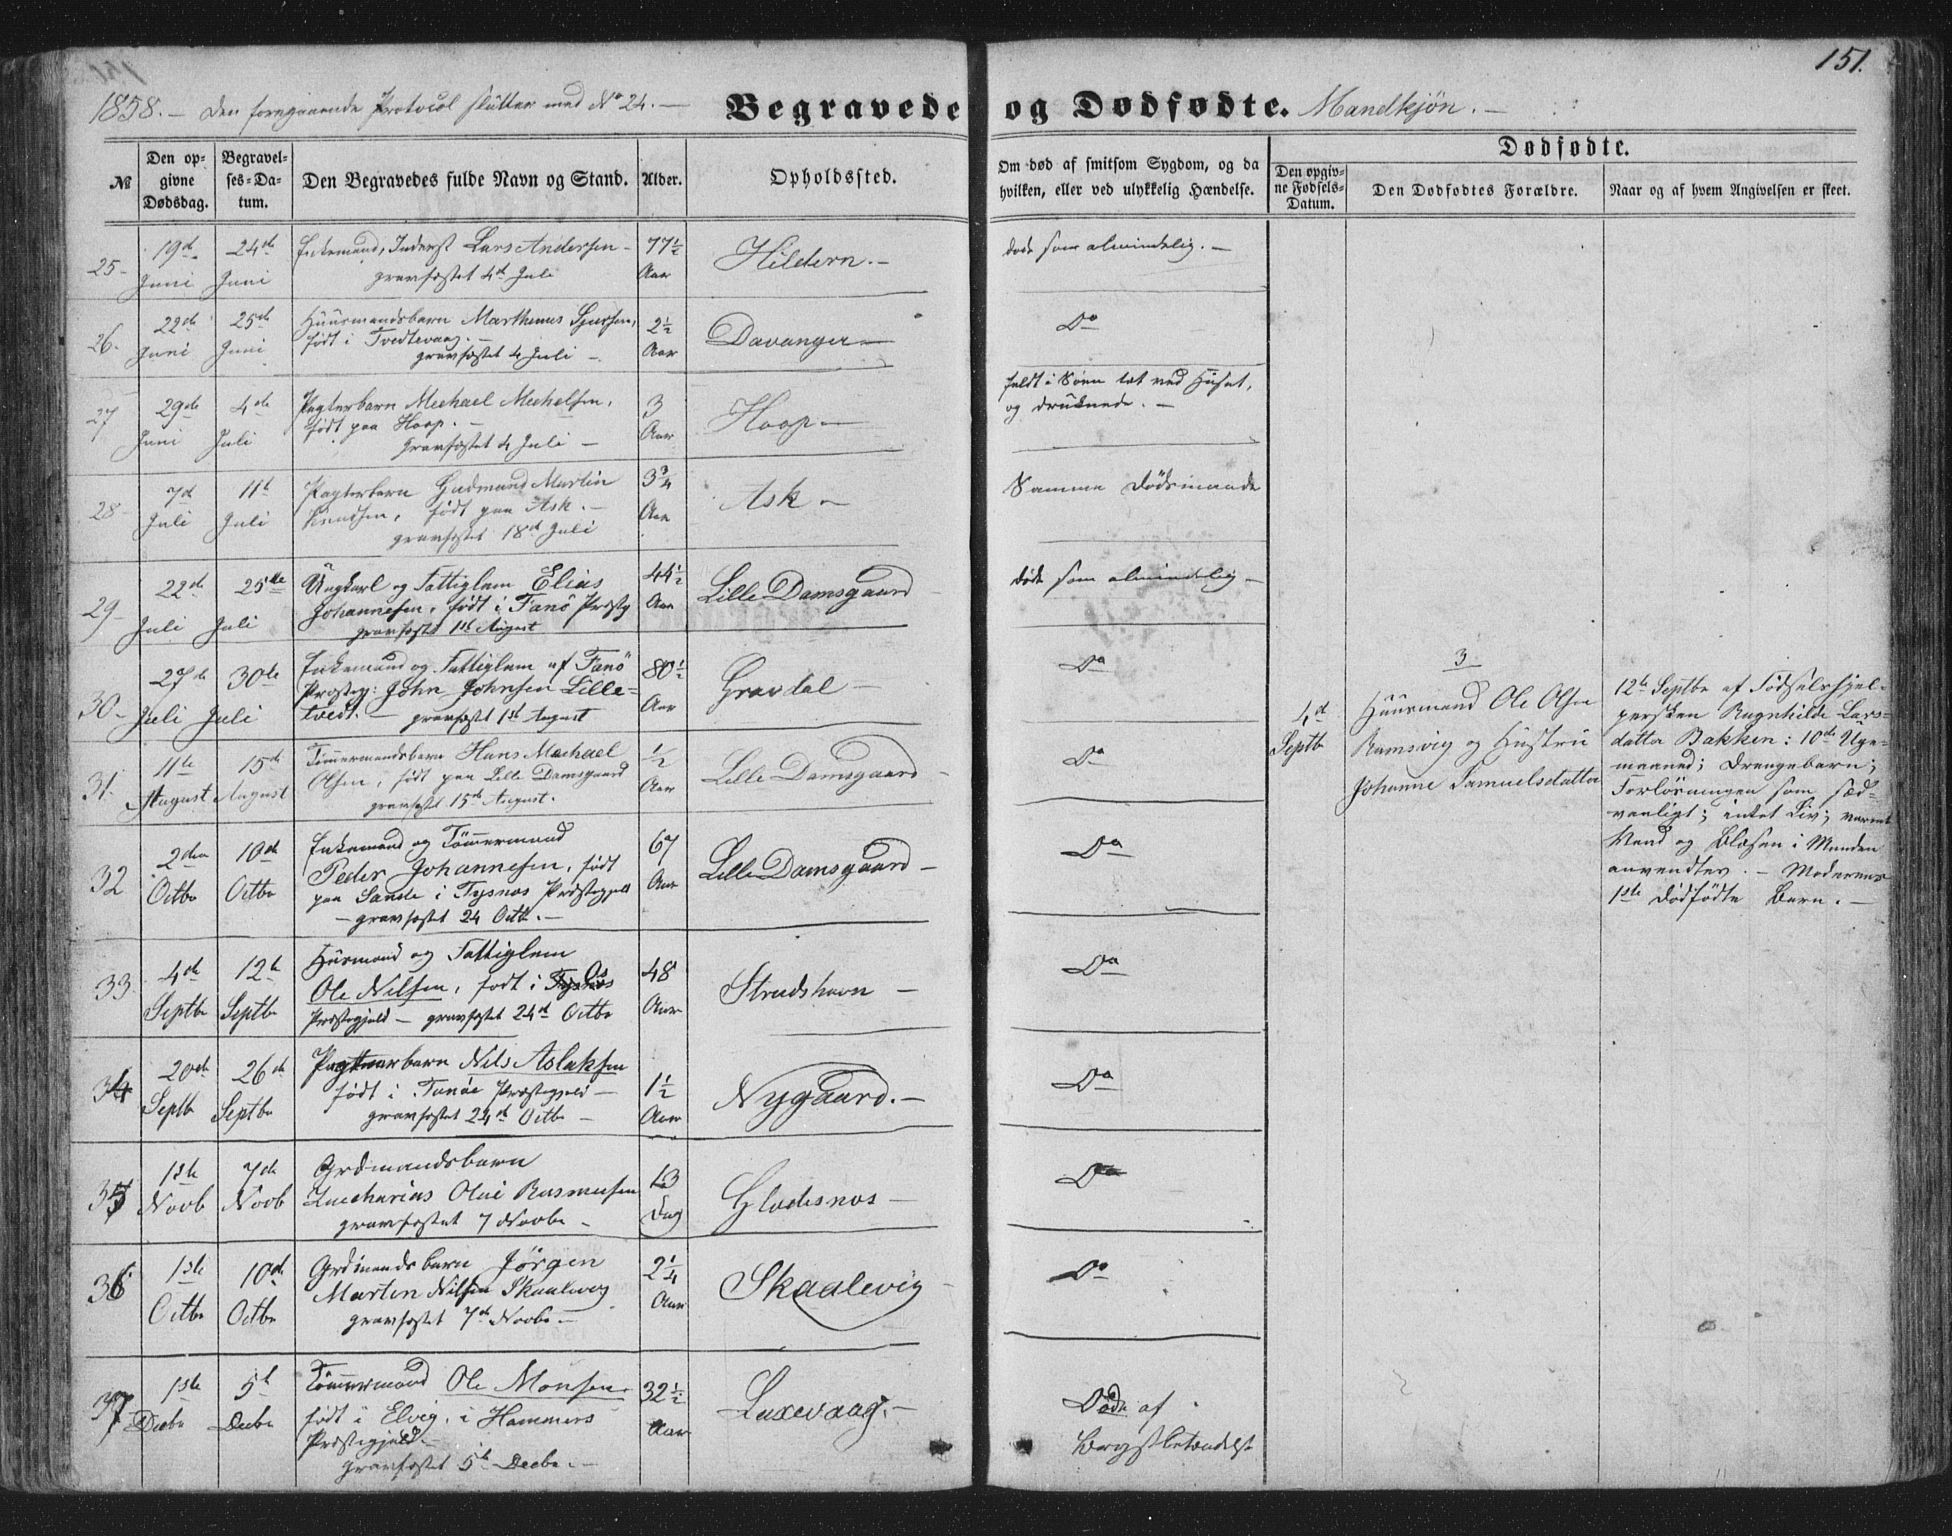 151.
1858. – Den foregaaende Protocol slutter med No 24. –
Begravede og Dødfødte. Mandkjön. –
No
Den opgivne Dødsdag.
Begravelses-Datum.
Den Begravedes fulde Navn og Stand.
Alder.
Opholdssted.
Om død af smitsom Sygdom, og da hvilken, eller ved ulykkelig Hændelse.
Dødfødte.
Den opgivne Fødsels-Datum.
Den Dødfødtes Forældre.
Naar og af hvem Angivelsen er skeet.
25 19d Juni 24de Juni
Enkemand, Inderst Lars Andersen –
gravfæstet 4de Juli
77½ Aar
Hildern. –
døde som almindelig. –
26. 22de Juni 25de Juni
Huusmandsbarn Marthinus Sjursen,
født i Tvedtevaag. –
gravfæstet 4 Juli –
2½ Aar
Davanger –
Do
27 29de Juni 4de Juli
Pagterbarn Mechael Mechelsen,
født paa Hoop. –
gravfæstet 4 Juli –
3 Aar
Hoop –
faldt i Søen tæt ved Huset,
og druknede. –
28 7d Juli 11te Juli
Pagterbarn Gudmund Martin
Knudsen, født paa Ask. –
gravfæstet 18de Juli
3¾ Aar
Ask –
Samme Dødsmaade
29 22de Juli 25de Juli
Ungkarl og Fattiglem Elias
Johannesen, født i Fanö Præstg
gravfæstet 1ste August
44½ Aar
Lille Damsgaard
døde som almindelig –
30 27de Juli 30te Juli
Enkemand og Fattiglem af Fanö
Præsteg: John Johnsen Lille-
tvedt. – gravfæstet 1ste August
80½ Aar
Gravdal –
Do
31. 11te August 15de August
Tømmermandsbarn Hans Mechael
Olsen, født paa Lille Damsgaard
gravfæstet 15de August.
½ Aar
Lille Damsgaard
Do
32 2den Octbr 10de Octbr
Enkemand og Tømmermand
Peder Johannesen, født
paa Sande i Tysnæs Præstegjeld
– gravfæstet 24 Octb. –
67 Aar
Lille Damsgaard –
Do
33 4de Septbr 12te Septbr
Husmand og Fattiglem
Ole Nilsen, født i Os
Præstegjeld – gravfæstet 24de Octbr
48 Aar
Strudshavn –
Do
34 20de Septb 26de Septbr
Pagterbarn Nils Aslaksen
født i Fanöe Præstegjeld –
gravfæstet 24de Octbr –
1½ Aar
Nygaard. –
Do
35 1ste Novb 7de Novb
Grdmandsbarn
Zacharias Olai Rasmusen
gravfæstet 7 Novbr –
13 Dag
Glædesnæs –
Do
36 1ste Octbr 10de Octbr
Grdmandsbarn Jörgen
Martin Nilsen Skaalevig
gravfæstet 7de Novbr –
2¼ Aar
Skaalevig
Do
37 1ste Decbr 5te Decbr
Tømmermand Ole Monsen
født i Elvig, i Hammers
Præstegjeld –
gravfæstet 5te Decbr. –
32½ Aar
Laxevaag. –
Døde af
Brystbetændelse
4de Septbr
3
Huusmand Ole Olsen
Ramsvig og Hustru
Johanne Samuelsdatter
12te Septbr af Fødselshjel-
persken Ragnhilde Lars-
datter Bakken: 10de Uge-
maaned; Drengebarn;
Forløsningen som sæd-
vanligt; intet Liv; varmt
Vand og Blæsen i Munden
anvendtes. – Moderens
1ste dødfödte Barn. –